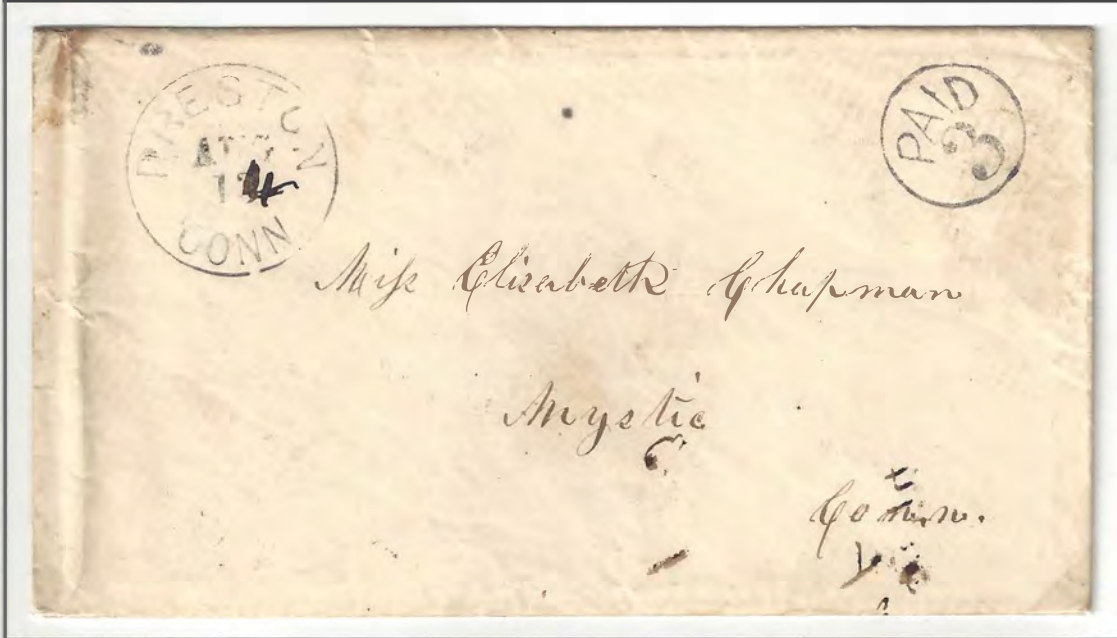 PRESTON
CONN
PAID
3
Miss Elizabeth Chapman
Mystic
Conn.